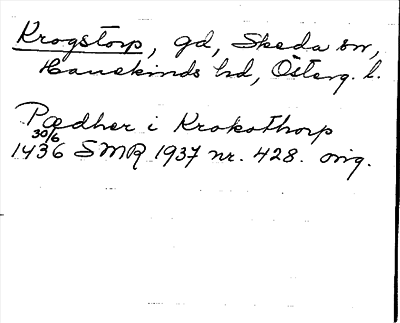 Krogstorp, gd, Skeda sn,
Hanekinds hd, Österg. l.
Pædher i Krokathorp
30/6
1436 SMR 1937 nr. 428. orig.